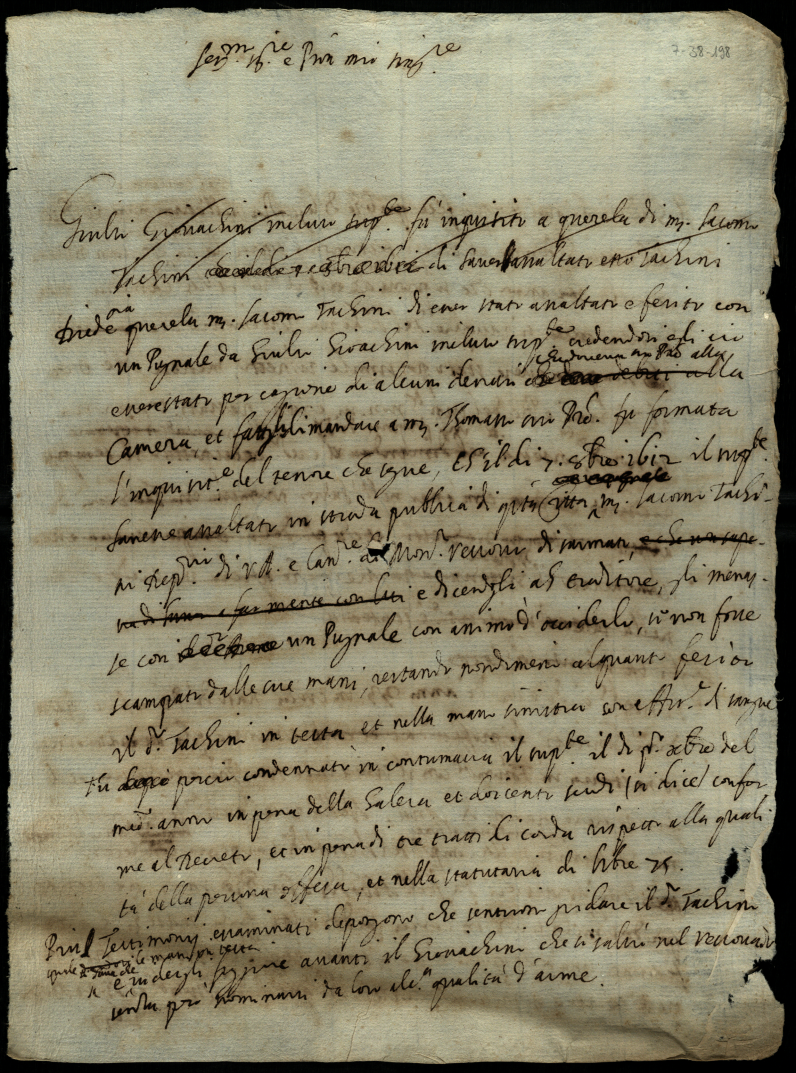 7-38-198
Ser.mo Sig.re e Pron mio sing.re
Giulio Giovachini incluso supp.te fù inquisito a querela di m. Jacomo
Tachini di haver assaltato esso Tachini
Diede già querela m. Jacomo Tachini di esser stato assaltato e ferito con
un Pugnale da Giulio Gioachini incluso supp.te credendosi egli ciò
essere stato per cagione di alcuni denari che doveva suo Pad. alla
Camera, et fattogli mandare a m. Thomasso suo Pad. fu formata
l'inquisit.e del tenore che segue, Che il dì 7. 8bre 1612 il supp.te
havesse assaltato in strada publica di q.sta Città m. Jacomo Tachi-
ni di V.A. e Can.re di Mons. Vescovo disarmato,
e dicendoli ah traditore, gli menas-
se con un Pugnale con animo d'occiderlo, se non fosse
scampato dalle sue mani, restando nondimeno alquanto ferito
il d.o Tachini in testa et nella mano sinistra con effus.e di sangue
Fù perciò condennato in contumacia il supp.te il dì p.o xbre del
med.o anno in pena della Galera et doicento scudi (si dice) confor
me al Decreto, et in pena di tre tratti di corda rispetto alla quali
tà della persona offesa, et nella statutaria di libre 75.
Più Testimonij essaminati depongono che sentirno gridare il d.o Tachini
quale si haveva le mani in testa
e vedergli fuggire avanti il Giovachini che si salvò nel Vescovado
però nominarsi da loro alc.a qualità d'arme.